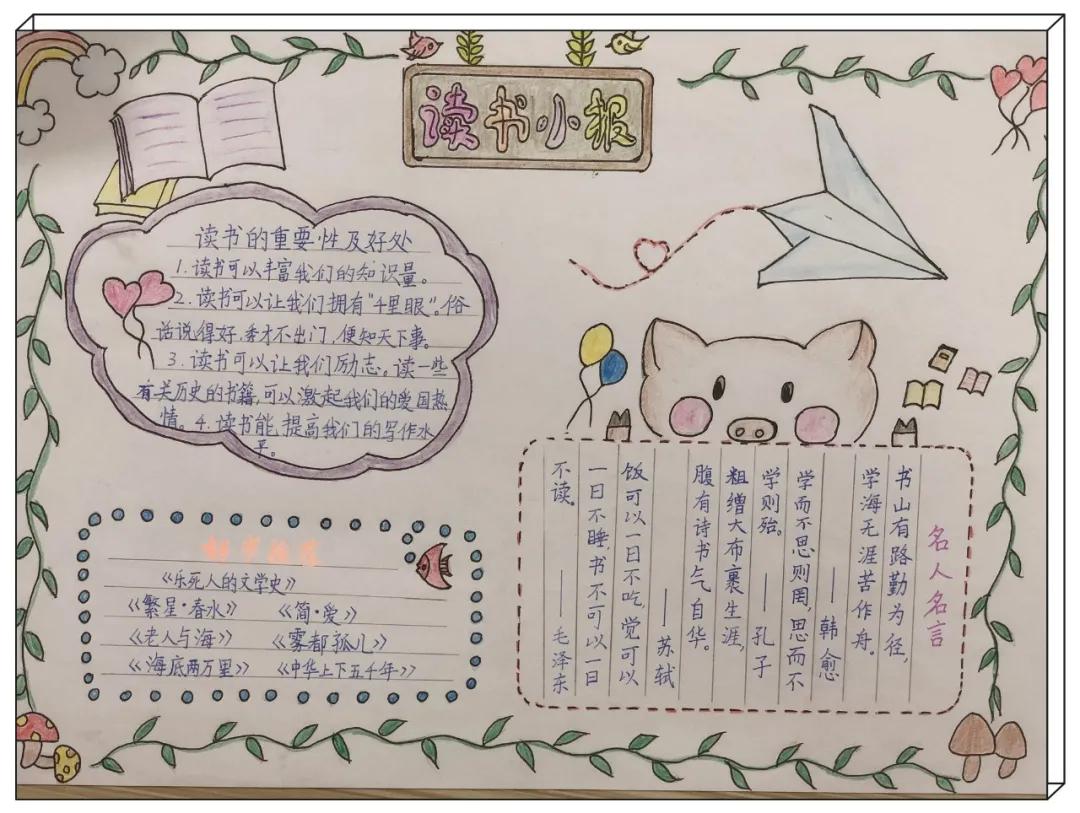 读书小报
读书的重要性及好处
1.读书可以丰富我们的知识量。
2.读书可以让我们拥有“千里眼”。俗
话说得好,秀才不出门,便知天下事。
3.读书可以让我们励志。读一些
有关历史的书籍,可以激起我们的爱国热
情。4.读书能提高我们的写作水
平。
好书推荐
《乐死人的文学史》
《繁星·春水》 《简·爱》
《老人与海》 《雾都孤儿》
《海底两万里》 《中华上下五千年》
名人名言
书山有路勤为径,
学海无涯苦作舟。
——韩愈
学而不思则罔,思而不
学则殆。——孔子
粗缯大布裹生涯,
腹有诗书气自华。
——苏轼
饭可以一日不吃,觉可以
一日不睡,书不可以一日
不读。——毛泽东